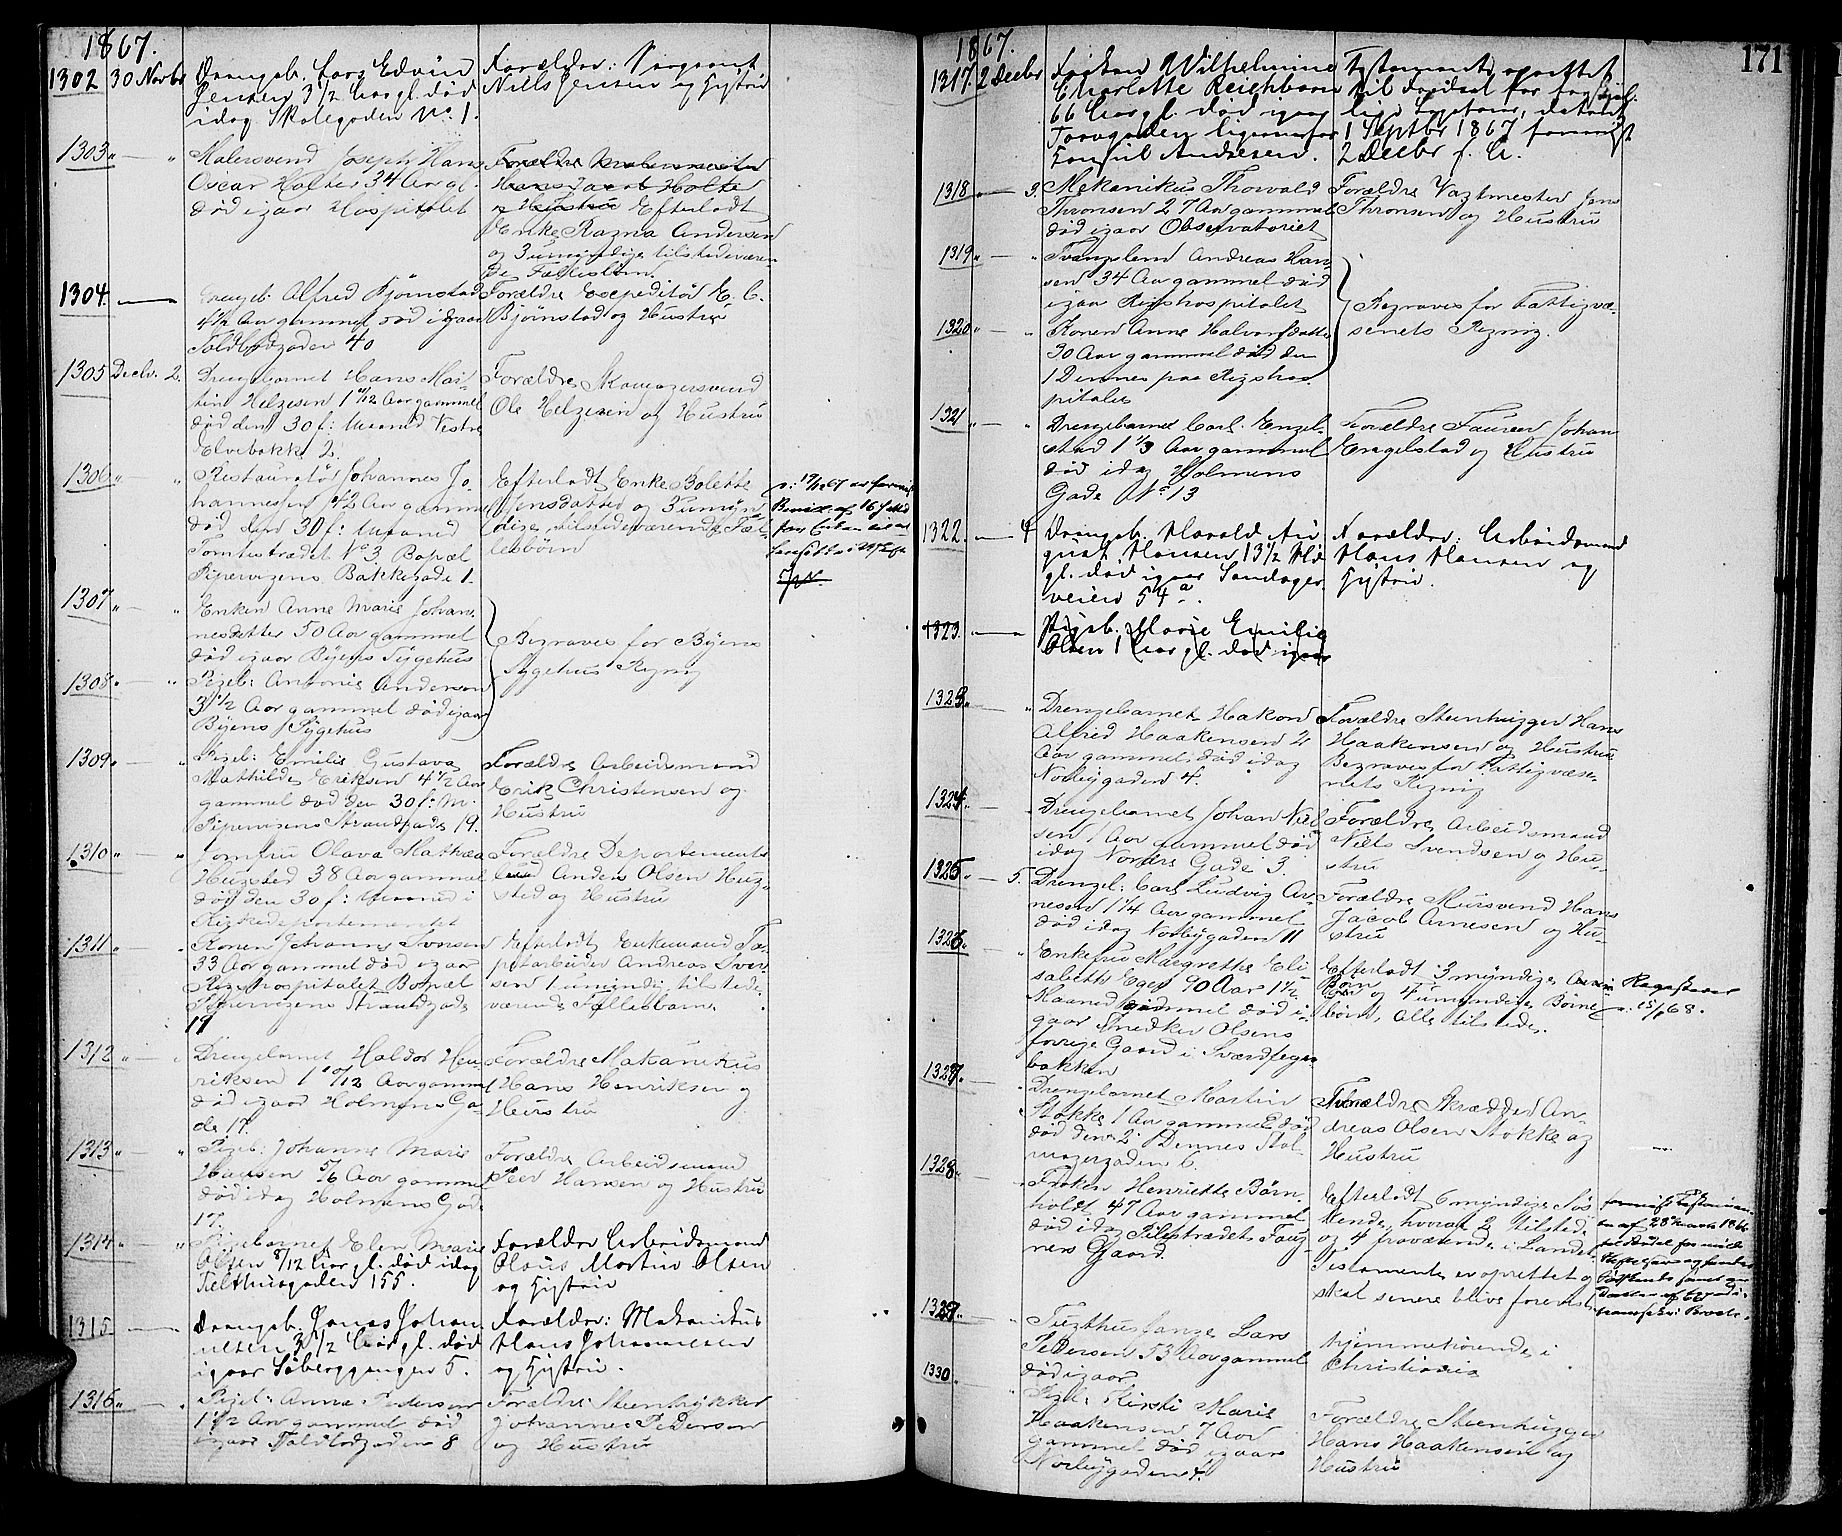 1867.
1302 30 Novbr Drengeb. Lars Edvin
Jensen 3 1/2 Aar gl. død
idag Skolegaden No. 1.
Forældre: Sergeant
Nills Jensen og Hustru
1303 Malersvend Joseph Hans
Oscar Holter 34 Aar gl.
død igaar Hospitalet
Forældre Malermester
Hans Jacob Holte
og Hustru Efterladt
Enke Ragna Andersen
og 3 umyndige tilstedeværen-
de Fællesbørn
1304 Drengeb: Alfred Bjørnstad
4 1/2 Aar gammel død igaar
Toldbodgaden 40
Forældre Expeditør E. C.
Bjørnstad og Hustru
1305 Decbr. 2. Drengebarnet Hans Mar-
tin Helgesen 1 11/12 Aar gammel
død den 30 f: Maaned Vestre
Elvebakke 2.
Forældre Skomagersvend
Ole Helgesen og Hustru
1306 Restauratør Johannes Jo-
hannesen 42 Aar gammel
død den 30 f: Maaned
Tomtestrædet No 3. Bopæl
Pipervigens Bakkegade 1.
Efterladt Enke Bolette
Jensdatter og 3 umyn-
dige tilstedeværende Fæl-
lesbørn
1307 Enken Anne Marie Johan-
nesdatter 50 Aar gammel
død igaar Byens Sygehus
1308 Pigeb: Antonie Andersen
3 1/2 Aar gammel død igaar
Byens Sygehus
Begraves for Byens
Sygehus Regning
1309 Pigeb: Emilie Gustava
Mathilde Eriksen 4 1/2 Aar
gammel død den 30 f: M.
Pipervigens Strandgade 19.
Forældre Arbeidsmand
Erik Christensen og
Hustru
1310 Jomfru Olava Mathea
Hugsted 38 Aar gammel
død den 30 f: Maaned i
Kirkedepartementet
Forældre Departements
bud Anders Olsen Hug-
sted og Hustru
1311 Konen Johanne Iversen
33 Aar gammel død igaar
Rigshospitalet Bopæl
Pipervigens Strandgade
19
Efterladt Enkemand Ta-
petarbeider Andreas Iver-
sen 1 umyndig tilstede-
værende Fællesbarn
1312 Drengebarnet Haldor Hen-
riksen 1 10/12 Aar gammel
død igaar Holmens Ga-
de 17.
Forældre Mekanikus
Hans Henriksen og
Hustru
1313 Pigeb: Johanne Marie
Hansen 5/6 Aar gammel
død idag Holmens Gade
17.
Forældre Arbeidsmand
Peer Hansen og Hustru
1314 Pigebarnet Elen Marie
Olsen 8/12 Aar gl. død idag
Telthusgaden 155.
Forældre Arbeidsmand
Olaus Martin Olsen
og Hustru
1315 Drengeb. Jonas Johan-
nesen 3 1/2 Aar gl. død
igaar Søberggangen 5.
Forældre: Mekanikus
Hans Johannesen
og Hustru.
1316 Pigeb: Anna Pedersen
1 1/2 Aar gammel død
igaar Toldbodgaden 8
Forældre Steenhugger
Johannes Pedersen
og Hustru
1867.
171
1317 2 Decbr Frøken Wilhelmine
Charlotte Reichborn
66 Aar gl. død igaar
Torvgaden ligeoverfor
Konsul Andresen.
Testament oprettet
1 Septbr 1867 forevist
2 Decbr s. A.
1318 3. Mekanikus Thorvald
Thronsen 27 Aar gammel
død igaar Observatoriet
Forældre Vagtmester Jens
Thronsen og Hustru
1319 Andreas Han-
sen 34 Aar gammel død
igaar Rigshospitalet
1320 Konen Anne Halvorsdatter
30 Aar gammel død den
1 Dennes paa Rigshos-
pitalet
Begraves for Fattigvæ-
senets Regning.
1321 Drengebarnet Carl Engel-
stad 1 1/3 Aar gammel
død idag Holmens
Gade No 13
Forældre Johan
Engelstad og Hustru
1322 4 Drengeb. Harald Au-
gust Hansen 13 1/2 Md
gl. død igaar Sandager-
veien 54 a.
Forældre: Arbeidsmand
Hans Hansen og
Hustru.
1323. Pigeb. Marie Emilie
Olsen 1 Aar gl. død igaar
1323. Drengebarnet Hakon
Alfred Haakensen 2
Aar gammel død idag
Norbygaden 4.
Forældre Steenhugger Hans
Haakensen og Hustru
Begraves for Fattigvæse-
nets Regning
1324. Drengebarnet Johan Niel-
sen 1 Aar gammel død
idag Nordre Gade 3.
Forældre Arbeidsmand
Niels Svendsen og Hu-
stru
1325 5. Drengeb: Carl Ludvig Ar-
nesen 1 1/4 Aar gammel
død idag Norbygaden 11
Forældre Mursvend Hans
Jacob Arnesen og Hu-
stru
1326. Enkefru Margrethe Eli-
sabeth Eger 70 Aar 1 1/2
Maaned gammel død i-
gaar Snedker Olsens
forrige Gaard i Sværdfeger-
bakken
Efterladt 3 myndige
Børn og 4 umyndige Børne-
børn, Alle tilstede.
1327. Drengebarnet Martin
Stokke 1 Aar gammel død
død den 2 Dennes Stol-
magergaden 6.
Forældre Skrædder An-
dreas Olsen Stokke og
Hustru
1328 Frøken Henriette Børn-
holdt 47 Aar gammel
død idag Pilestrædet Fang-
ners Gaard
Efterladt 6 myndige Søs-
kende, hvoraf 2 tilstede
og 4 fraværende i Landet.
Testamente er oprettet og
skal senere blive forevist
1329 Tugthusfange Lars
Pedersen 53 Aar gammel
død igaar.
Hjemmehørende i
Christiania
1330 Pigeb: Kirsti Marie
Haakensen 7 Aar
gammel død igaar
Norbygaden 4.
Forældre Steenhugger
Hans Haakensen og
Hustru